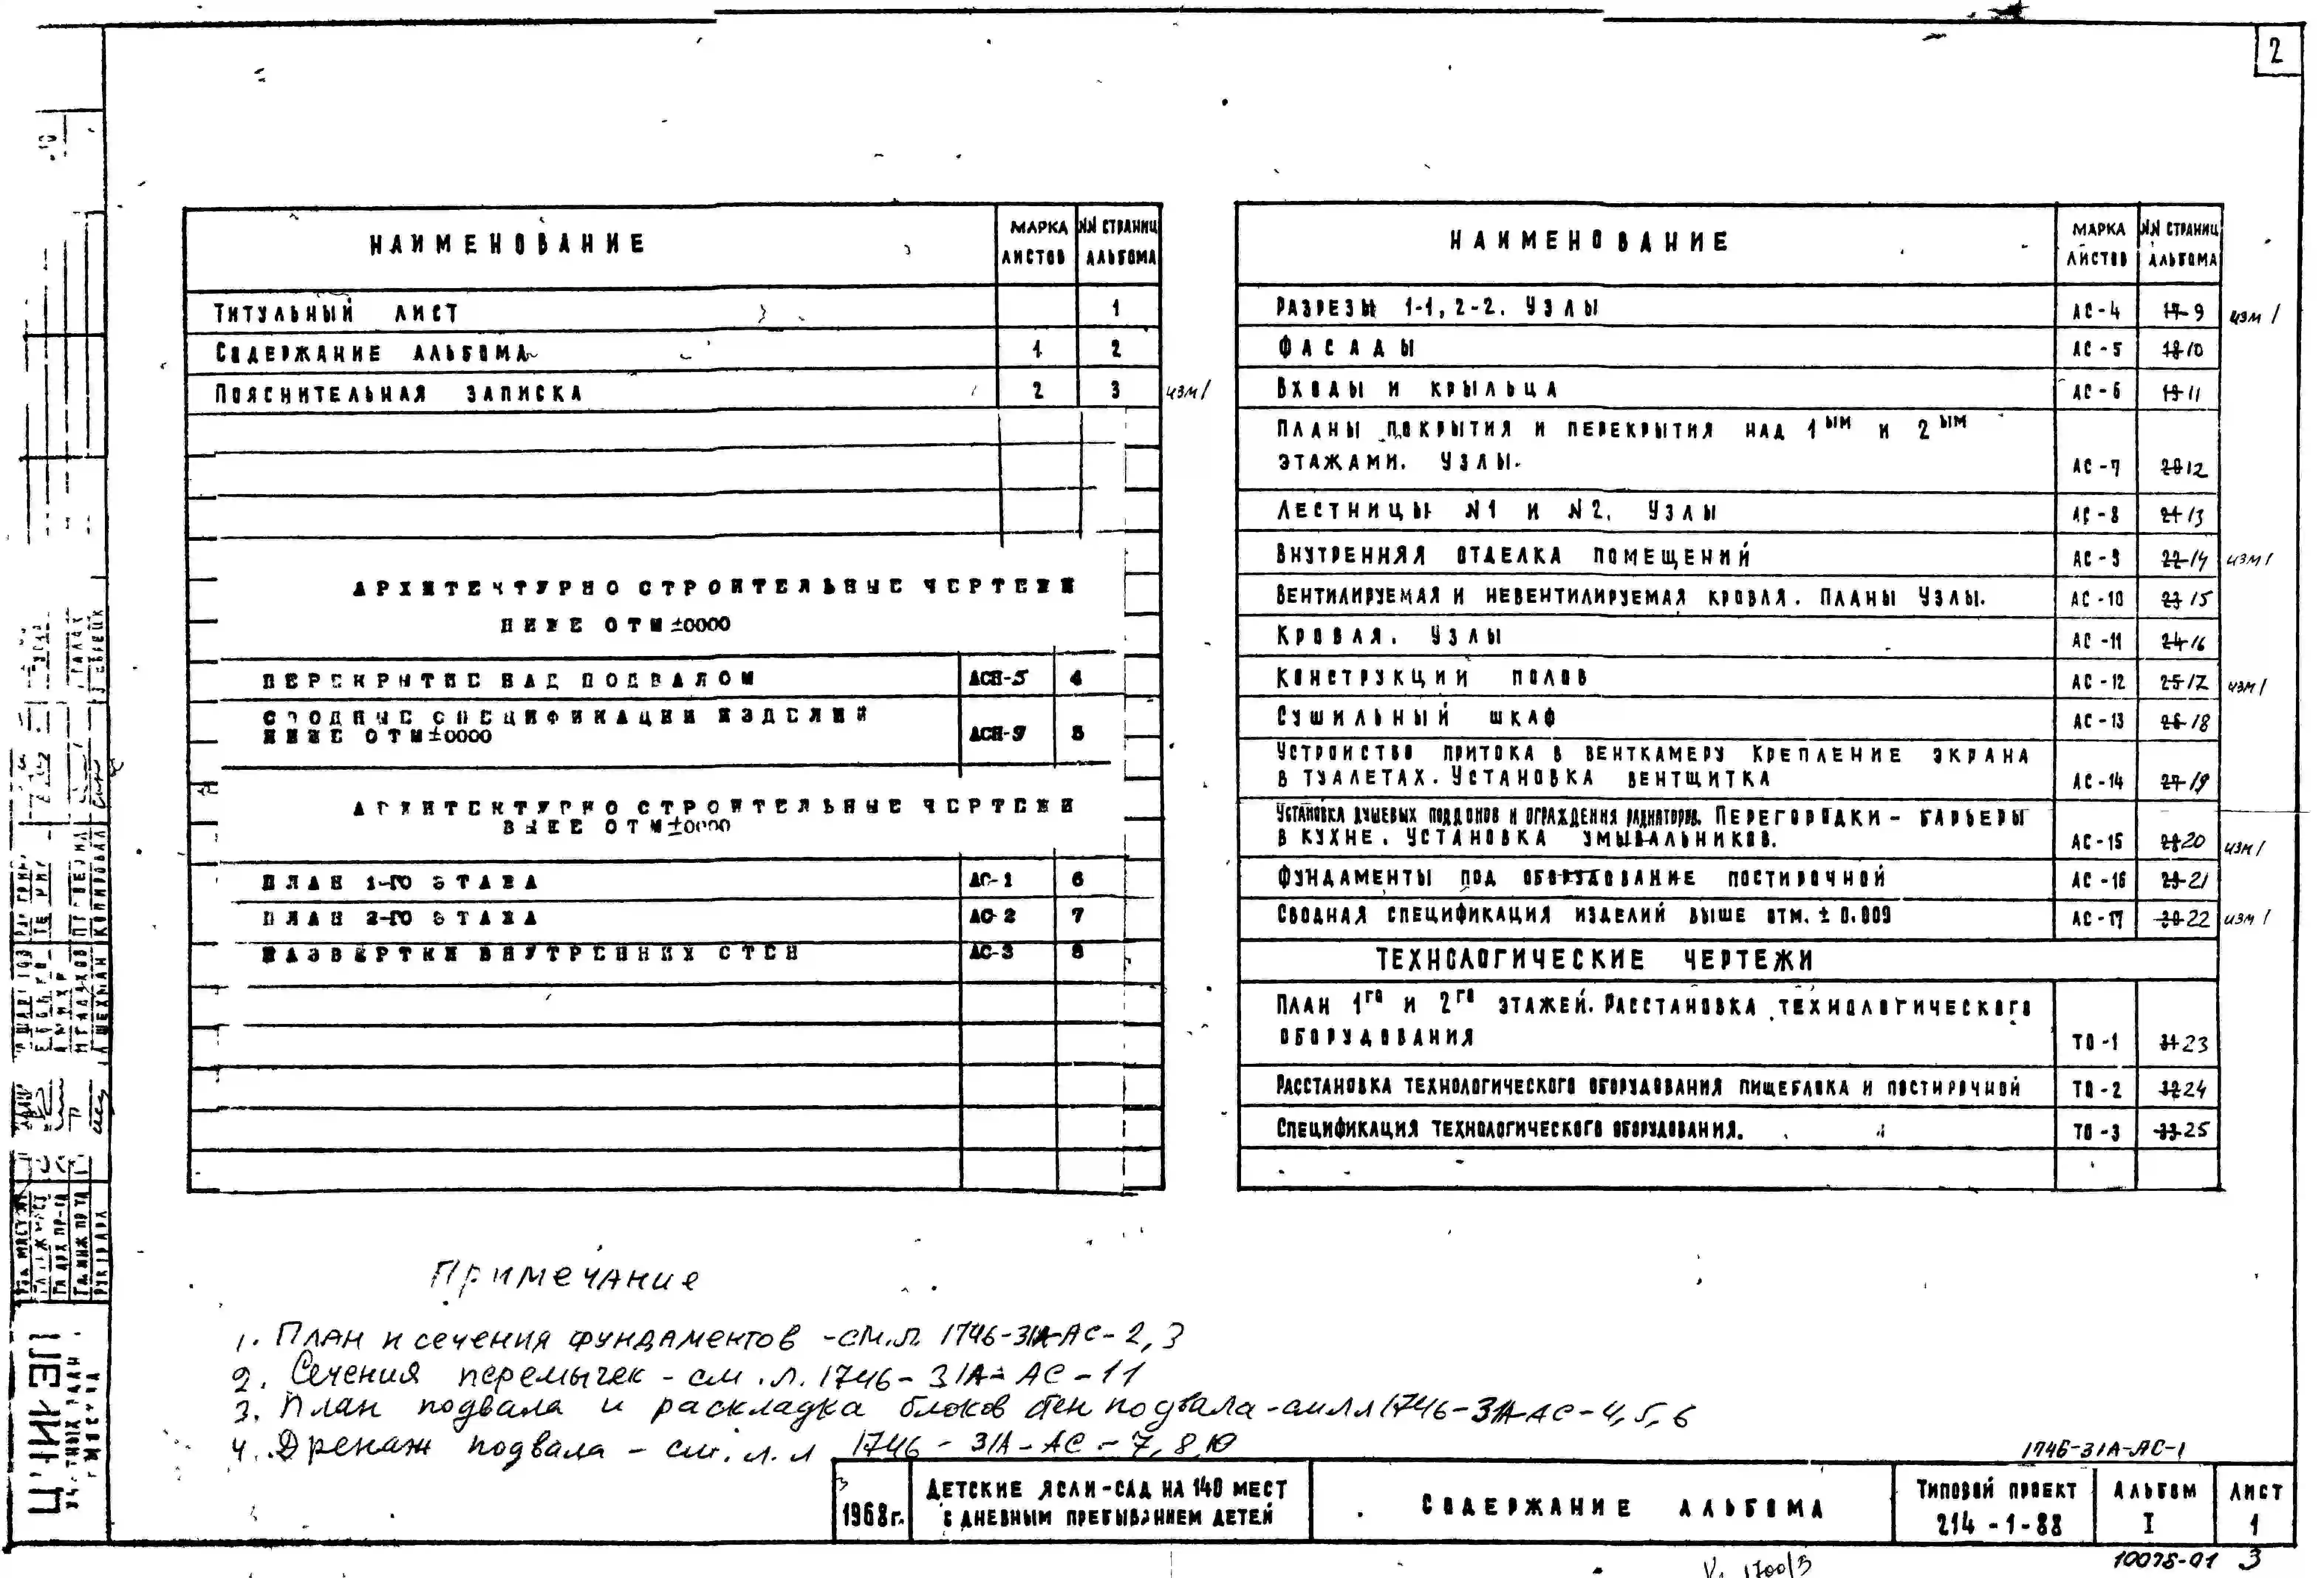 2
НАИМЕНОВАНИЕ МАРКА ЛИСТОВ №№ СТРАНИЦ АЛЬБОМА
ТИТУЛЬНЫЙ ЛИСТ 1
СОДЕРЖАНИЕ АЛЬБОМА 1 2
ПОЯСНИТЕЛЬНАЯ ЗАПИСКА 2 3 изм1
АРХИТЕКТУРНО СТРОИТЕЛЬНЫЕ ЧЕРТЕЖИ
НИЖЕ ОТМ ±0000
ПЕРЕКРЫТИЕ НАД ПОДВАЛОМ АСН-5 4
СВОДНЫЕ СПЕЦИФИКАЦИИ ИЗДЕЛИЙ
НИЖЕ ОТМ ±0000 АСН-9 5
АРХИТЕКТУРНО СТРОИТЕЛЬНЫЕ ЧЕРТЕЖИ
ВЫШЕ ОТМ ±0000
ПЛАН 1-ГО ЭТАЖА АС-1 6
ПЛАН 2-ГО ЭТАЖА АС-2 7
РАЗВЕРТКИ ВНУТРЕННИХ СТЕН АС-3 8
НАИМЕНОВАНИЕ МАРКА ЛИСТОВ №№ СТРАНИЦ АЛЬБОМА
РАЗРЕЗЫ 1-1, 2-2. УЗЛЫ АС-4 17 9 изм1
ФАСАДЫ АС-5 18 10
ВХОДЫ И КРЫЛЬЦА АС-6 19 11
ПЛАНЫ ПОКРЫТИЯ И ПЕРЕКРЫТИЯ НАД 1ЫМ И 2ЫМ
ЭТАЖАМИ. УЗЛЫ. АС-7 20 12
ЛЕСТНИЦЫ №1 И №2. УЗЛЫ АС-8 21 13
ВНУТРЕННЯЯ ОТДЕЛКА ПОМЕЩЕНИЙ АС-9 22 14 изм1
ВЕНТИЛИРУЕМАЯ И НЕВЕНТИЛИРУЕМАЯ КРОВЛЯ. ПЛАНЫ УЗЛЫ. АС-10 23 15
КРОВЛЯ. УЗЛЫ АС-11 24 16
КОНСТРУКЦИИ ПОЛОВ АС-12 25 17 изм1
СУШИЛЬНЫЙ ШКАФ АС-13 26 18
УСТРОЙСТВО ПРИТОКА В ВЕНТКАМЕРУ КРЕПЛЕНИЕ ЭКРАНА
В ТУАЛЕТАХ. УСТАНОВКА ВЕНТЩИТКА АС-14 27 19
УСТАНОВКА ДУШЕВЫХ ПОДДОНОВ И ОГРАЖДЕНИЯ РАДИАТОРОВ. ПЕРЕГОРОДКИ - БАРЬЕРЫ
В КУХНЕ. УСТАНОВКА УМЫВАЛЬНИКОВ. АС-15 28 20 изм1
ФУНДАМЕНТЫ ПОД ОБОРУДОВАНИЕ ПОСТИРОЧНОЙ АС-16 29 21
СВОДНАЯ СПЕЦИФИКАЦИЯ ИЗДЕЛИЙ ВЫШЕ ОТМ. ± 0.000 АС-17 30 22 изм1
ТЕХНОЛОГИЧЕСКИЕ ЧЕРТЕЖИ
ПЛАН 1ГО И 2ГО ЭТАЖЕЙ. РАССТАНОВКА ТЕХНОЛОГИЧЕСКОГО
ОБОРУДОВАНИЯ ТО-1 31 23
РАССТАНОВКА ТЕХНОЛОГИЧЕСКОГО ОБОРУДОВАНИЯ ПИЩЕБЛОКА И ПОСТИРОЧНОЙ ТО-2 32 24
СПЕЦИФИКАЦИЯ ТЕХНОЛОГИЧЕСКОГО ОБОРУДОВАНИЯ. ТО-3 33 25
Примечание
1. План и сечения фундаментов - см.л. 1746-31А-АС-2,3
2. Сечения перемычек - см.л. 1746-31А-АС-11
3. План подвала и раскладка блоков стен подвала - см лл 1746-31А-АС-4,5,6
4. Дренаж подвала - см. л.л 1746-31А-АС-7,8,10
1746-31А-АС-1
1968г.
ДЕТСКИЕ ЯСЛИ-САД НА 140 МЕСТ
С ДНЕВНЫМ ПРЕБЫВАНИЕМ ДЕТЕЙ
СОДЕРЖАНИЕ АЛЬБОМА
ТИПОВОЙ ПРОЕКТ
214-1-88
АЛЬБОМ
I
ЛИСТ
1
10075-01 3